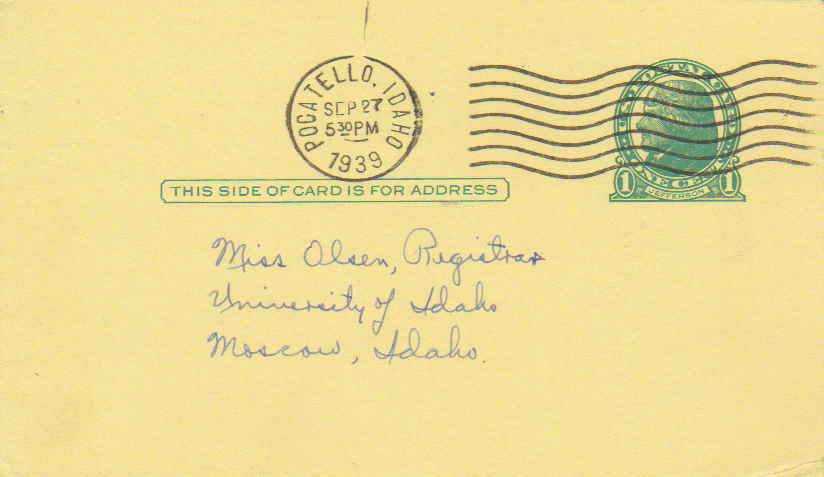 POCATELLO, IDAHO
SEP 27
5 30 PM
1939
UNITED STATES POSTAGE
ONE CENT
1 JEFFERSON 1
THIS SIDE OF CARD IS FOR ADDRESS
Miss Olsen, Registrar
University of Idaho
Moscow, Idaho.